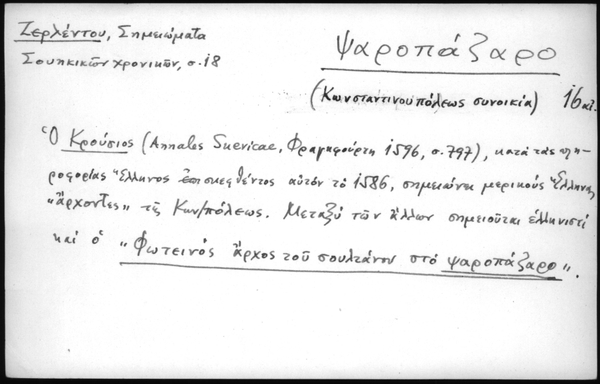 Ζερλέντου, Σημειώματα
Σουηκικῶν χρονικῶν, σ. 18
ψαροπάζαρο
(Κωνσταντινουπόλεως συνοικία) 16 αἰ.
Ὁ Κρούσιος (Annales Suevicae, Φραγκφούρτη 1596, σ. 797), κατὰ τὰς πλη-
ροφορίας Ἕλληνος ἐπισκεφθέντος αὐτὸν τὸ 1586, σημειώνει μερικοὺς Ἕλληνας
"ἄρχοντες" τῆς Κων/πόλεως. Μεταξὺ τῶν ἄλλων σημειοῦται ἑλληνιστὶ
καὶ ὁ "Φωτεινὸς ἄρχος τοῦ σουλτάνου στὸ ψαροπάζαρο".